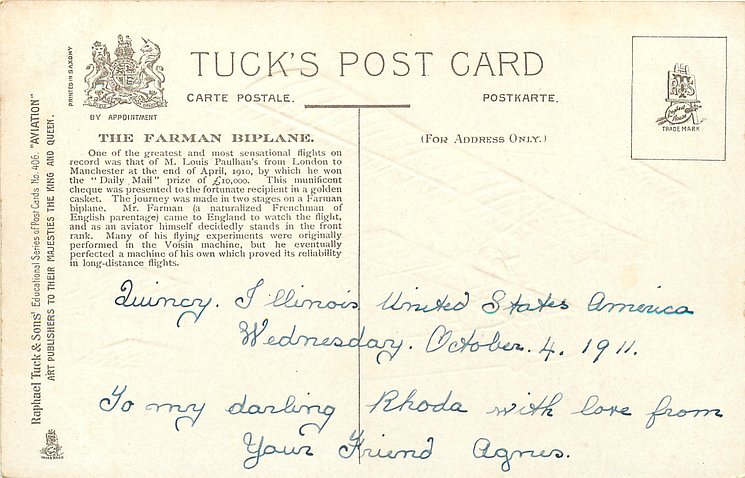 TUCK'S POST CARD
CARTE POSTALE.
POSTKARTE.
BY APPOINTMENT
PRINTED IN SAXONY
(FOR ADDRESS ONLY.)
TRADE MARK
THE FARMAN BIPLANE.
One of the greatest and most sensational flights on
record was that of M. Louis Paulhan's from London to
Manchester at the end of April, 1910, by which he won
the "Daily Mail" prize of £10,000. This munificent
cheque was presented to the fortunate recipient in a golden
casket. The journey was made in two stages on a Farman
biplane. Mr. Farman (a naturalized Frenchman of
English parentage) came to England to watch the flight,
and as an aviator himself decidedly stands in the front
rank. Many of his flying experiments were originally
performed in the Voisin machine, but he eventually
perfected a machine of his own which proved its reliability
in long-distance flights.
Raphael Tuck & Sons' Educational Series of Post Cards No. 406. "AVIATION"
ART PUBLISHERS TO THEIR MAJESTIES THE KING AND QUEEN.
Quincy. Illinois United States America
Wednesday. October. 4. 1911.
To my darling Rhoda with love from
Your Friend Agnes.